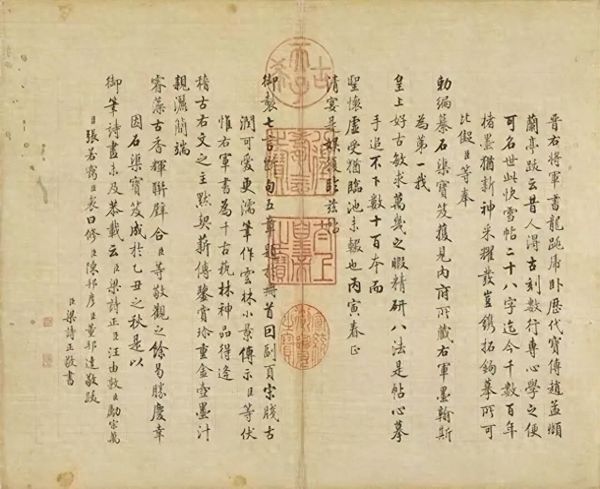 晉右將軍書龍跳虎臥歷代寶傳趙孟頫
蘭亭跋云昔人得古刻數行專心學之便
可名世此快雪帖二十八字迄今千數百年
楮墨猶新神采耀發豈鐫拓鉤摹所可
比儗臣等奉
勅編纂石渠寶笈獲見內府所藏右軍墨翰斯
為第一我
皇上好古敏求萬幾之暇精研八法是帖心摹
手追不下數十百本而
聖懷虛受猶臨池未輟也丙寅春正
清宴是娛復臨茲帖
御製七言斷句五章題於冊首因副頁宋牋古
潤可愛更濡筆作雲林小景傳示臣等伏
惟右軍書為千古執林神品得逢
稽古右文之主默契薪傳鑒賞珍重金壺墨汁
親灑簡端
睿藻古香輝聯璧合臣等敬觀之餘曷勝慶幸
因石渠寶笈成於乙丑之秋是以
御筆詩畫未及恭載云臣梁詩正臣汪由敦臣勵宗萬
臣張若靄臣裘曰修臣陳邦彥臣董邦達敬跋
臣梁詩正敬書
古希天子
八徵耄念之寶
太上皇帝之寶